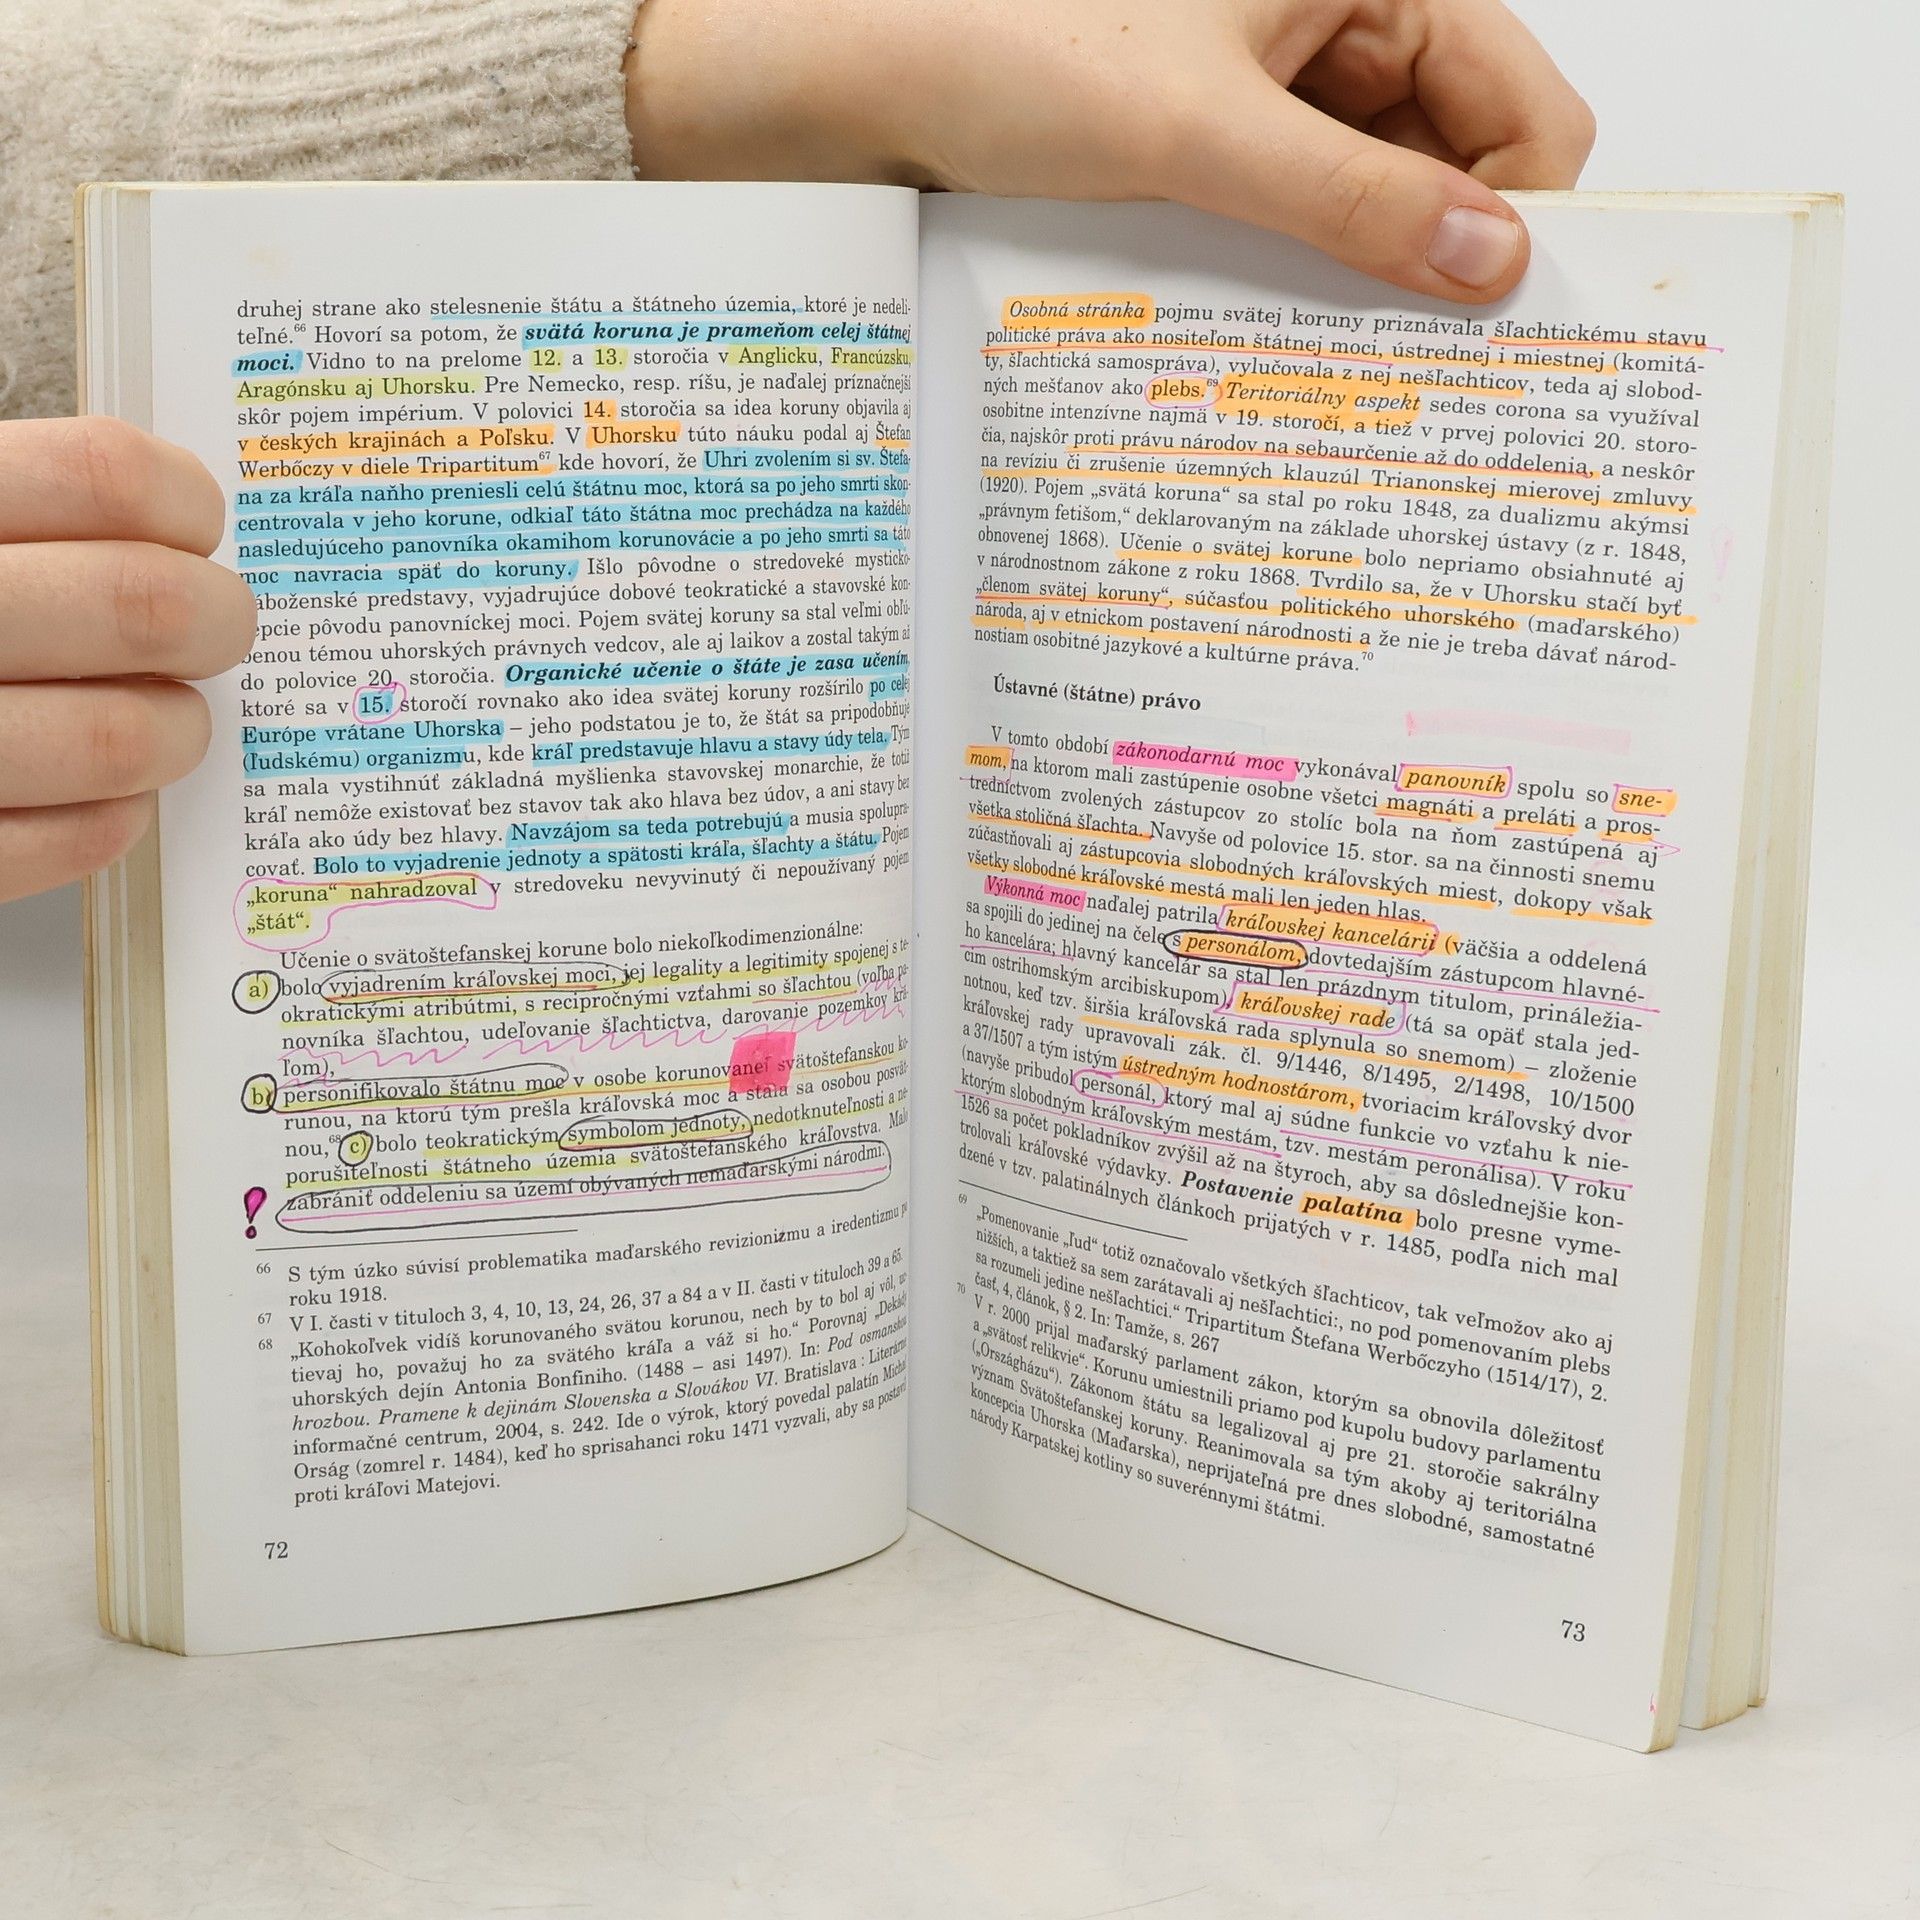 druhej strane ako stelesnenie štátu a štátneho územia, ktoré je nedeli-
teľné.66 Hovorí sa potom, že svätá koruna je prameňom celej štátnej
moci. Vidno to na prelome 12. a 13. storočia v Anglicku, Francúzsku,
Aragónsku aj Uhorsku. Pre Nemecko, resp. ríšu, je naďalej príznačnejší
skôr pojem impérium. V polovici 14. storočia sa idea koruny objavila aj
v českých krajinách a Poľsku. V Uhorsku túto náuku podal aj Štefan
Werbőczy v diele Tripartitum67 kde hovorí, že Uhri zvolením si sv. Štefa-
na za kráľa naňho preniesli celú štátnu moc, ktorá sa po jeho smrti skon-
centrovala v jeho korune, odkiaľ táto štátna moc prechádza na každého
nasledujúceho panovníka okamihom korunovácie a po jeho smrti sa táto
moc navracia späť do koruny. Išlo pôvodne o stredoveké mysticko-
áboženské predstavy, vyjadrujúce dobové teokratické a stavovské kon-
epcie pôvodu panovníckej moci. Pojem svätej koruny sa stal veľmi obľú-
benou témou uhorských právnych vedcov, ale aj laikov a zostal takým až
do polovice 20. storočia. Organické učenie o štáte je zasa učením,
ktoré sa v 15. storočí rovnako ako idea svätej koruny rozšírilo po celej
Európe vrátane Uhorska – jeho podstatou je to, že štát sa pripodobňuje
(ľudskému) organizmu, kde kráľ predstavuje hlavu a stavy údy tela. Tým
sa mala vystihnúť základná myšlienka stavovskej monarchie, že totiž
kráľ nemôže existovať bez stavov tak ako hlava bez údov, a ani stavy bez
kráľa ako údy bez hlavy. Navzájom sa teda potrebujú a musia spolupra-
covať. Bolo to vyjadrenie jednoty a spätosti kráľa, šľachty a štátu. Pojem
„koruna“ nahradzoval v stredoveku nevyvinutý či nepoužívaný pojem
„štát“.
Učenie o svätoštefanskej korune bolo niekoľkodimenzionálne:
a) bolo vyjadrením kráľovskej moci, jej legality a legitimity spojenej s te-
okratickými atribútmi, s recipročnými vzťahmi so šľachtou (voľba pa-
novníka šľachtou, udeľovanie šľachtictva, darovanie pozemkov krá-
ľom),
b) personifikovalo štátnu moc v osobe korunovanej svätoštefanskou ko-
runou, na ktorú tým prešla kráľovská moc a stala sa osobou posvät-
nou,68 c) bolo teokratickým symbolom jednoty, nedotknuteľnosti a ne-
porušiteľnosti štátneho územia svätoštefanského kráľovstva. Malo
zabrániť oddeleniu sa území obývaných nemaďarskými národmi.
66 S tým úzko súvisí problematika maďarského revizionizmu a iredentizmu po
roku 1918.
67 V I. časti v tituloch 3, 4, 10, 13, 24, 26, 37 a 84 a v II. časti v tituloch 39 a 65.
68 „Kohokoľvek vidíš korunovaného svätou korunou, nech by to bol aj vôl,
tievaj ho, považuj ho za svätého kráľa a váž si ho.“ Porovnaj „Dekády
uhorských dejín Antonia Bonfiniho. (1488 – asi 1497). In: Pod osmanskou
hrozbou. Pramene k dejinám Slovenska a Slovákov VI. Bratislava : Literárne
informačné centrum, 2004, s. 242. Ide o výrok, ktorý povedal palatín Michal
Orság (zomrel r. 1484), keď ho sprisahanci roku 1471 vyzvali, aby sa postavil
proti kráľovi Matejovi.
72
Osobná stránka pojmu svätej koruny priznávala šľachtickému stavu
politické práva ako nositeľom štátnej moci, ústrednej i miestnej (komitá-
ty, šľachtická samospráva), vylučovala z nej nešľachticov, teda aj slobod-
ných mešťanov ako plebs.69 Teritoriálny aspekt sedes corona sa využíval
osobitne intenzívne najmä v 19. storočí, a tiež v prvej polovici 20. storo-
čia, najskôr proti právu národov na sebaurčenie až do oddelenia, a neskôr
na revíziu či zrušenie územných klauzúl Trianonskej mierovej zmluvy
(1920). Pojem „svätá koruna“ sa stal po roku 1848, za dualizmu akýmsi
„právnym fetišom,“ deklarovaným na základe uhorskej ústavy (z r. 1848,
obnovenej 1868). Učenie o svätej korune bolo nepriamo obsiahnuté aj
v národnostnom zákone z roku 1868. Tvrdilo sa, že v Uhorsku stačí byť
„členom svätej koruny“, súčasťou politického uhorského (maďarského)
národa, aj v etnickom postavení národnosti a že nie je treba dávať národ-
nostiam osobitné jazykové a kultúrne práva.70
Ústavné (štátne) právo
V tomto období zákonodarnú moc vykonával panovník spolu so sne-
mom, na ktorom mali zastúpenie osobne všetci magnáti a preláti a pros-
tredníctvom zvolených zástupcov zo stolíc bola na ňom zastúpená aj
všetka stoličná šľachta. Navyše od polovice 15. stor. sa na činnosti snemu
zúčastňovali aj zástupcovia slobodných kráľovských miest, dokopy však
všetky slobodné kráľovské mestá mali len jeden hlas.
Výkonná moc naďalej patrila kráľovskej kancelárii (väčšia a oddelená
sa spojili do jedinej na čele s personálom, dovtedajším zástupcom hlavné-
ho kancelára; hlavný kancelár sa stal len prázdnym titulom, prináležia-
cim ostrihomským arcibiskupom), kráľovskej rade (tá sa opäť stala jed-
notnou, keď tzv. širšia kráľovská rada splynula so snemom) – zloženie
kráľovskej rady upravovali zák. čl. 9/1446, 8/1495, 2/1498, 10/1500
a 37/1507 a tým istým ústredným hodnostárom, tvoriacim kráľovský dvor
(navyše pribudol personál, ktorý mal aj súdne funkcie vo vzťahu k nie-
ktorým slobodným kráľovským mestám, tzv. mestám peronálisa). V roku
1526 sa počet pokladníkov zvýšil až na štyroch, aby sa dôslednejšie kon-
trolovali kráľovské výdavky. Postavenie palatína bolo presne vyme-
dzené v tzv. palatinálnych článkoch prijatých v r. 1485, podľa nich mal
69 „Pomenovanie „ľud“ totiž označovalo všetkých šľachticov, tak veľmožov ako aj
nižších, a taktiež sa sem zarátavali aj nešľachtici:, no pod pomenovaním plebs
sa rozumeli jedine nešľachtici.“ Tripartitum Štefana Werbőczyho (1514/17), 2.
časť, 4, článok, § 2. In: Tamže, s. 267
70 V r. 2000 prijal maďarský parlament zákon, ktorým sa obnovila dôležitosť
a „svätosť relikvie“. Korunu umiestnili priamo pod kupolu budovy parlamentu
(„Országházu“). Zákonom štátu sa legalizoval aj pre 21. storočie sakrálny
význam Svätoštefanskej koruny. Reanimovala sa tým akoby aj teritoriálna
koncepcia Uhorska (Maďarska), neprijateľná pre dnes slobodné, samostatné
národy Karpatskej kotliny so suverénnymi štátmi.
73